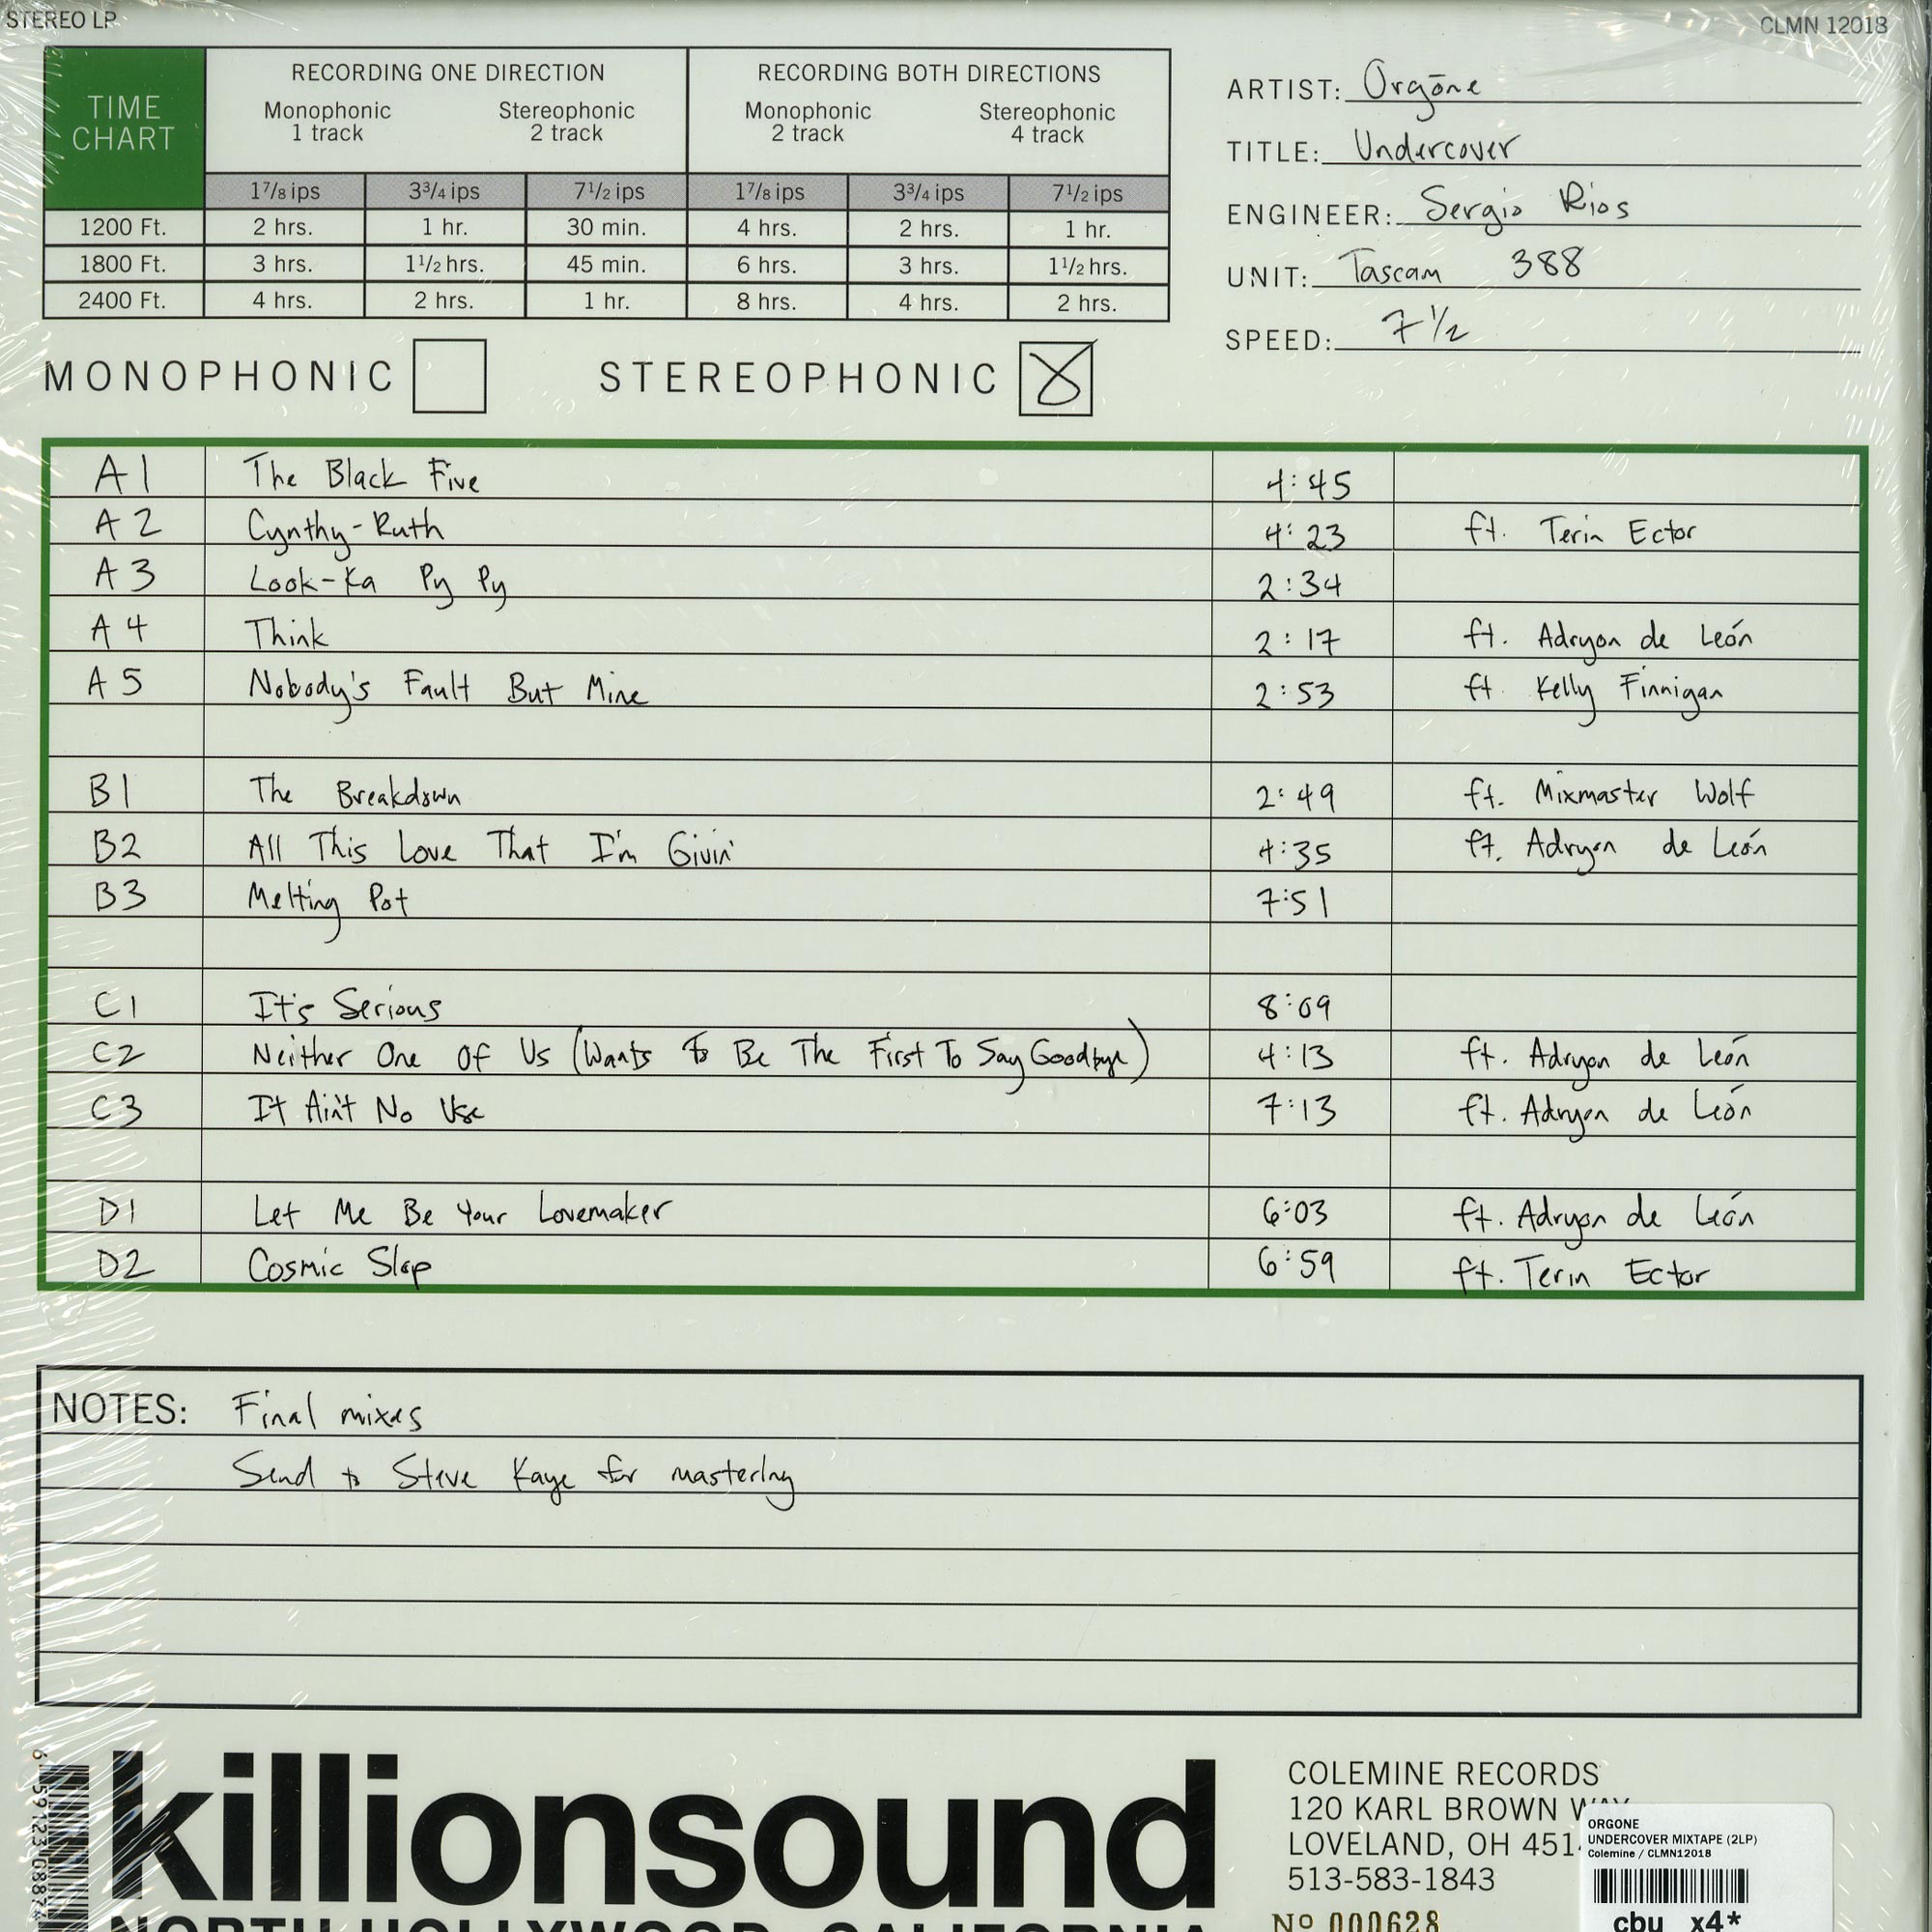 STEREO LP
CLMN 12018
TIME CHART
RECORDING ONE DIRECTION
RECORDING BOTH DIRECTIONS
Monophonic 1 track
Stereophonic 2 track
Monophonic 2 track
Stereophonic 4 track
1 7/8 ips 3 3/4 ips 7 1/2 ips 1 7/8 ips 3 3/4 ips 7 1/2 ips
1200 Ft. 2 hrs. 1 hr. 30 min. 4 hrs. 2 hrs. 1 hr.
1800 Ft. 3 hrs. 1 1/2 hrs. 45 min. 6 hrs. 3 hrs. 1 1/2 hrs.
2400 Ft. 4 hrs. 2 hrs. 1 hr. 8 hrs. 4 hrs. 2 hrs.
ARTIST: Orgōne
TITLE: Undercover
ENGINEER: Sergio Rios
UNIT: Tascam 388
SPEED: 7 1/2
MONOPHONIC
STEREOPHONIC
A1 The Black Five 4:45
A2 Cynthy-Ruth 4:23 ft. Terin Ector
A3 Look-Ka Py Py 2:34
A4 Think 2:17 ft. Adryon de León
A5 Nobody's Fault But Mine 2:53 ft. Kelly Finnigan
B1 The Breakdown 2:49 ft. Mixmaster Wolf
B2 All This Love That I'm Givin' 4:35 ft. Adryon de León
B3 Melting Pot 7:51
C1 It's Serious 8:09
C2 Neither One Of Us (Wants To Be The First To Say Goodbye) 4:13 ft. Adryon de León
C3 It Ain't No Use 7:13 ft. Adryon de León
D1 Let Me Be Your Lovemaker 6:03 ft. Adryon de León
D2 Cosmic Slop 6:59 ft. Terin Ector
NOTES: Final mixes
Send to Steve Kaye for mastering
killionsound
NORTH HOLLYWOOD, CALIFORNIA
COLEMINE RECORDS
120 KARL BROWN WAY
LOVELAND, OH
513-583-1843
No 000628
ORGONE
UNDERCOVER MIXTAPE (2LP)
Colemine / CLMN12018
cbu x4*